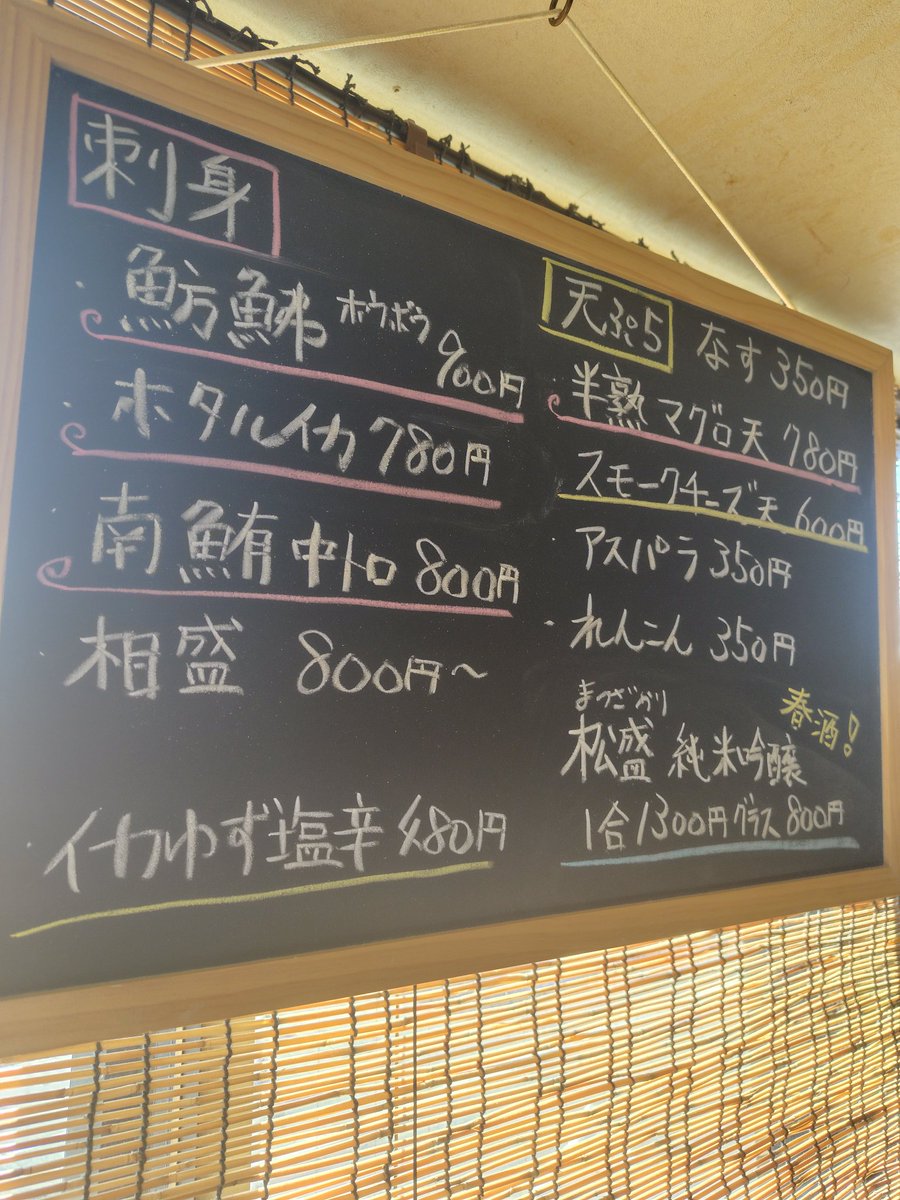 刺身
・魴鮄 ホウボウ 900円
・ホタルイカ 780円
・南鮪中トロ 800円
・相盛 800円〜
・イカゆず塩辛 480円
天ぷら なす 350円
・半熟マグロ天 780円
・スモークチーズ天 600円
・アスパラ 350円
・れんこん 350円
まつざかり
春酒!
松盛 純米吟醸
1合1300円グラス800円